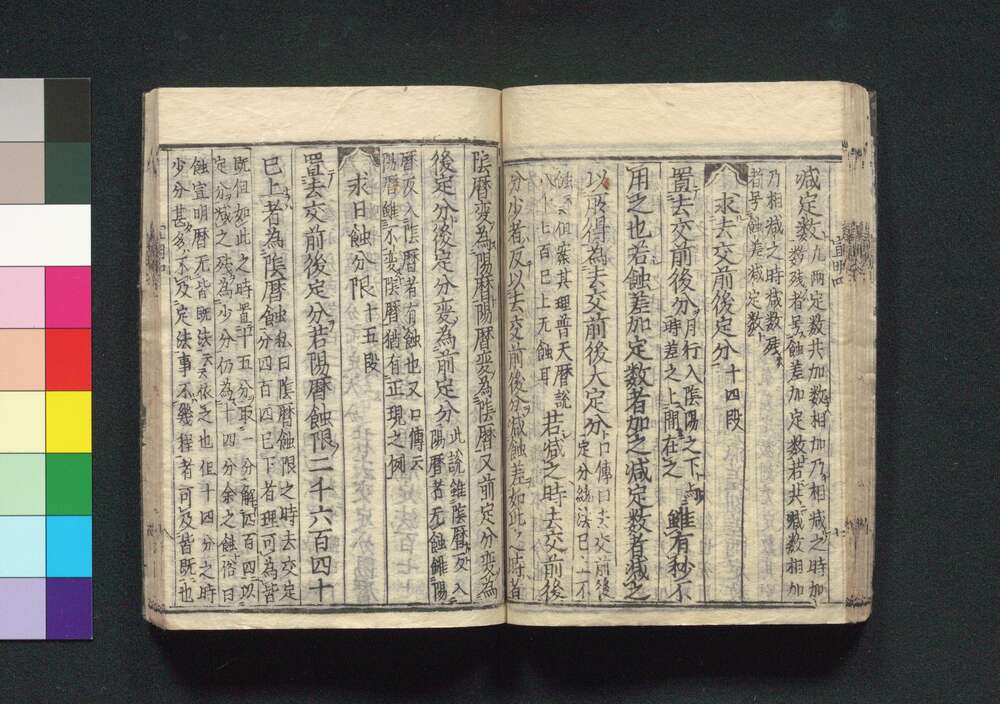 減定数凡両定数共加数相加乃相減之時加
数残者号蝕差加定数若共減数相加
乃相減之時減数残
者号蝕差減定数
求去交前後定分十四段
置去交前後分月行入陰陽之下
時差之上開在之 雖有秒不
用之也若蝕差加定数者加之減定数者減之
以所得為去交前後大定分口傳曰去交前後
定分総法已上不
蝕云云但案其理普天暦説
八千七百已上无蝕耳 若減之時去交前後
分少者反以去交前後分減蝕差如此之時者
陰暦変為陽暦陽暦変為陰暦又前定分変為
後定分後定分変為前定分此説雖陰暦反入
陽暦者无蝕雖陽
暦反入陰暦者有蝕也又口傳云
陽暦雖不変陰暦猶有正現之例
求日蝕分限十五段
置去交前後定分若陽暦蝕限二千六百四十
已上者為陰暦蝕私曰陰暦蝕限之時去交定
分四百四已下者理可為皆
既但如此之時置十五分取一分解四百四以
定分減之残為少分仍為十四分余之蝕俗曰
蝕宣明暦无皆既法云云依之也但十四分之時
少分甚多不及定法事不幾程者可及皆既也